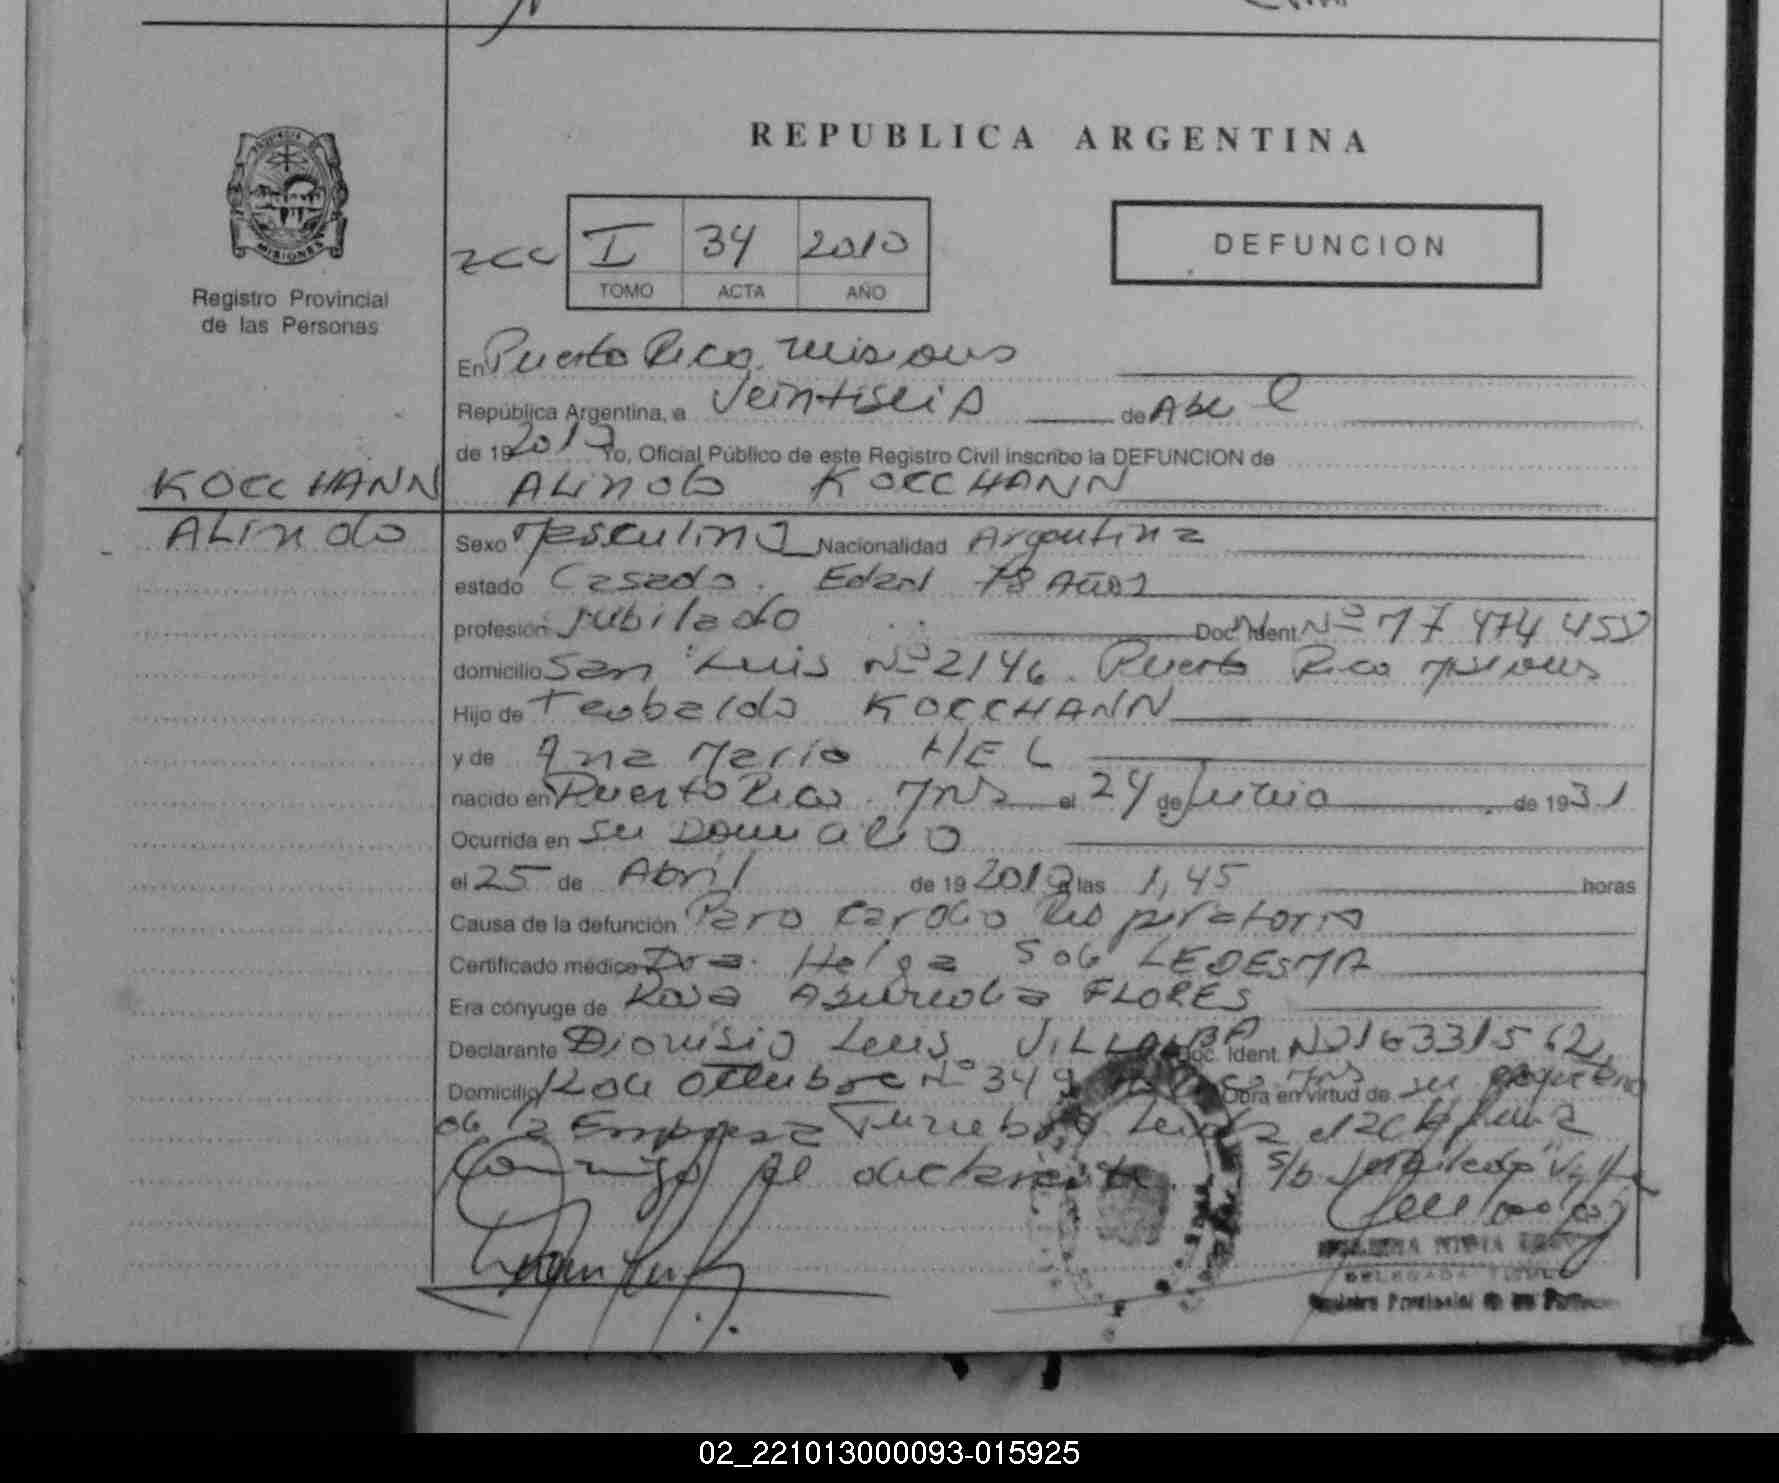 REPUBLICA ARGENTINA
I 34 2010
TOMO ACTA AÑO
DEFUNCION
MISIONES
Registro Provincial
de las Personas
En Puerto Rico, Misiones
República Argentina, a Veintiseis de Abril
de 19 2010 Yo, Oficial Público de este Registro Civil inscribo la DEFUNCION de
KOCCHANN
ALindo KOCCHANN
ALindo
Sexo Masculino Nacionalidad Argentina
estado Casado. Edad 78 Años
profesión Jubilado Doc. Ident. Nº 17 474 459
domicilio San Luis Nº 2146. Puerto Rico Misiones
Hijo de Teobaldo KOCCHANN
y de Ana Maria HEL
nacido en Puerto Rico. Mns el 24 de Junio de 1931
Ocurrida en su Domicilio
el 25 de Abril de 19 2010 a las 1,45 horas
Causa de la defunción Paro Cardio Respiratorio
Certificado médico Dra. Helga de LEDESMA
Era cónyuge de Rosa Asuncion FLORES
Declarante Dionisio Luis. VILLALBA Doc. Ident. Nº 16331562
Domicilio 12 de Octubre Nº 349 Obra en virtud de su
de la Empresa Funebre
Conmigo el declarante. s/b
Registro Provincial de las Personas
02_221013000093-015925